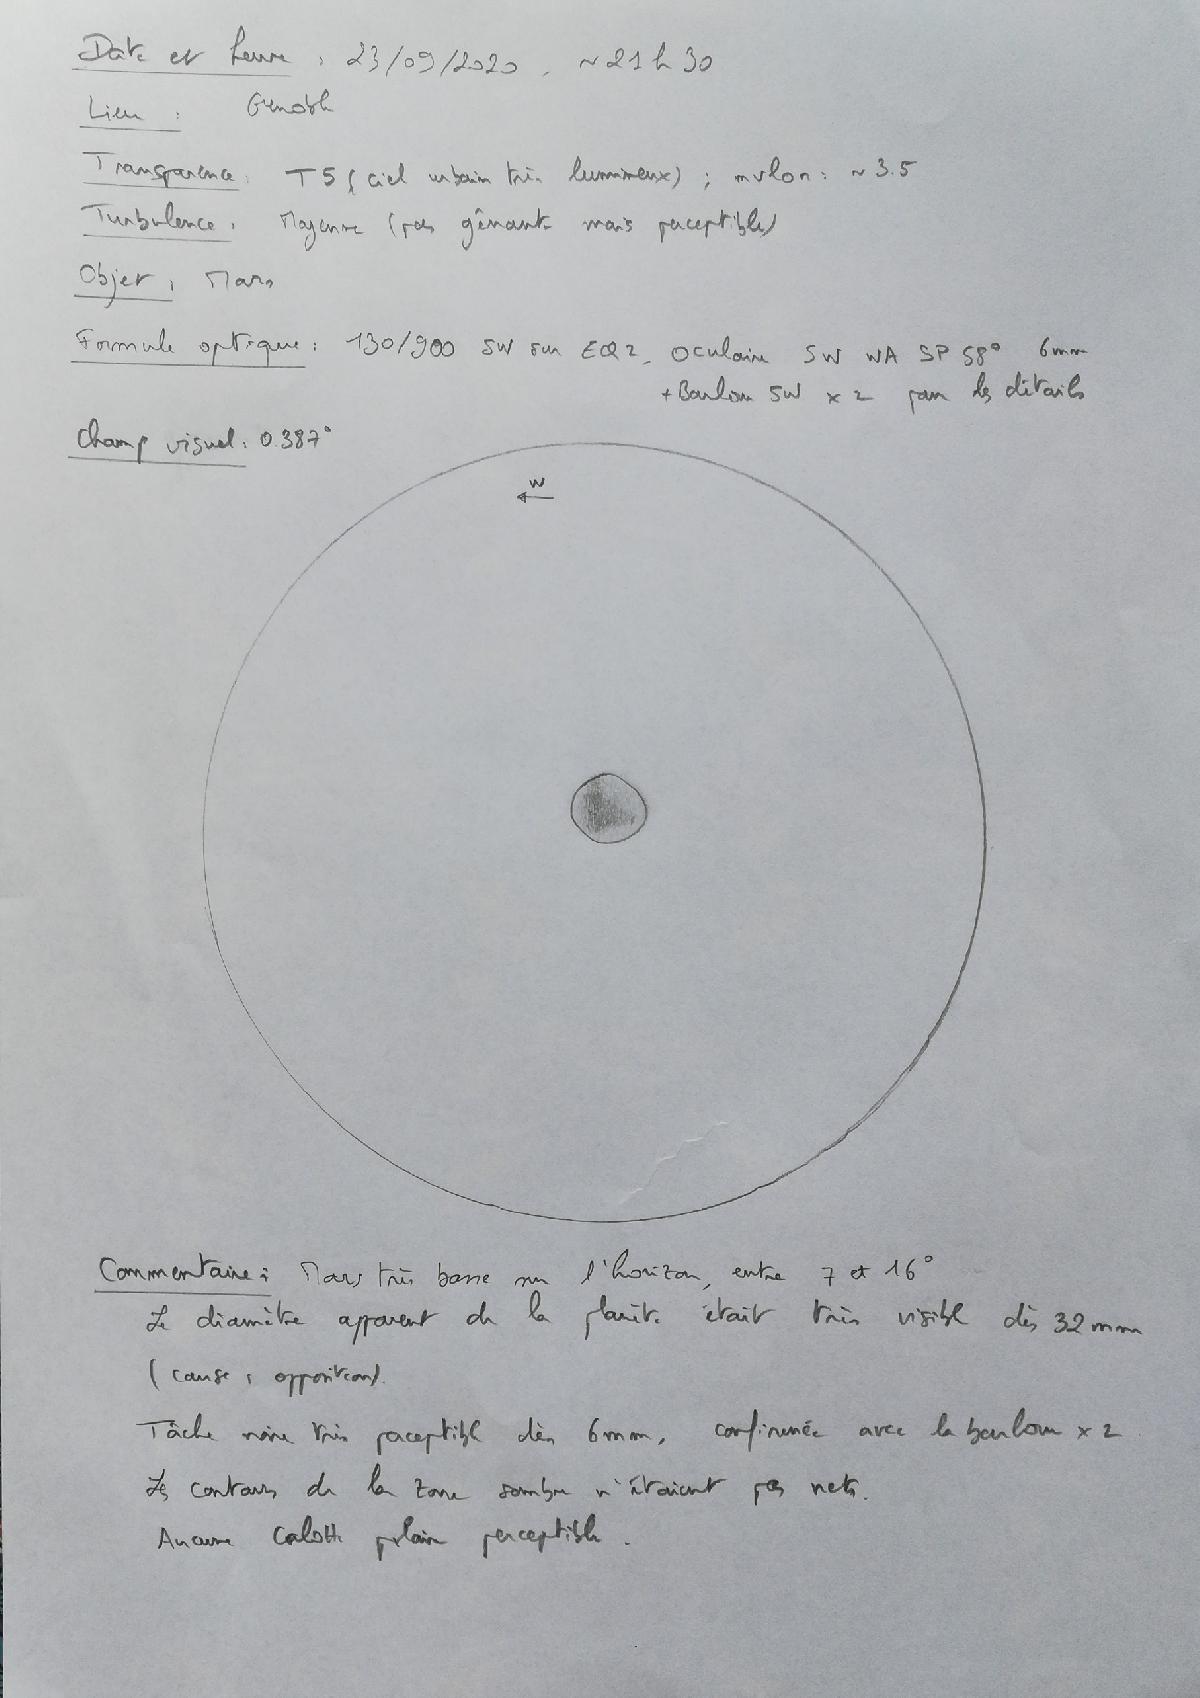 Date et heure : 23/09/2020, ~21h30
Lieu : Grenoble
Transparence : T5 (ciel urbain très lumineux) ; mvlon : ~3.5
Turbulence : Moyenne (pas gênante mais perceptible)
Objet : Mars
Formule optique : 130/900 SW sur EQ2, Oculaire SW WA SP 58° 6mm
+ Barlow SW x2 pour les détails
Champ visuel : 0.387°
W
Commentaire : Mars très basse sur l'horizon, entre 7 et 16°
Le diamètre apparent de la planète était très visible dès 32mm
(cause : opposition).
Tâche noire très perceptible dès 6mm, confirmée avec la barlow x2
Les contours de la zone sombre n'étaient pas nets.
Aucune calotte polaire perceptible.